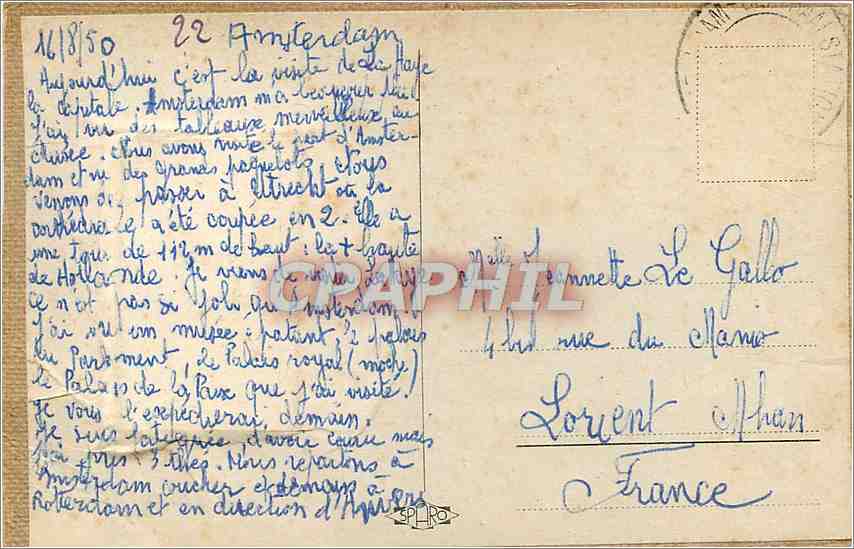 16/8/50 22 Amsterdam
Aujourd'hui c'est la visite de La Haye
la capitale. Amsterdam m'a
J'ai vu des tableaux merveilleux au
Musée. Nous avons visité le port d'Amster-
dam et vu des grands paquebots. Nous
venons de passer à Utrecht où la
cathédrale a été coupée en 2. Elle a
une tour de 112 m de haut : la + haute
de Hollande. Je viens de voir La Haye
ce n'est pas si joli qu'Amsterdam.
J'ai vu un musée : patant, 2 palais
du Parlement, le Palais royal (moche)
le Palais de la Paix que j'ai visité.
Je vous l'expédierai demain.
Je suis fatiguée d'avoir couru mais
j'ai pris 3 Nous repartons à
Amsterdam coucher et demain à
Rotterdam et en direction d'Anvers
SPHRO
Melle Jeannette Le Gallo
4 bis rue du Manio
Lorient Mhan
France
CPAPHIL